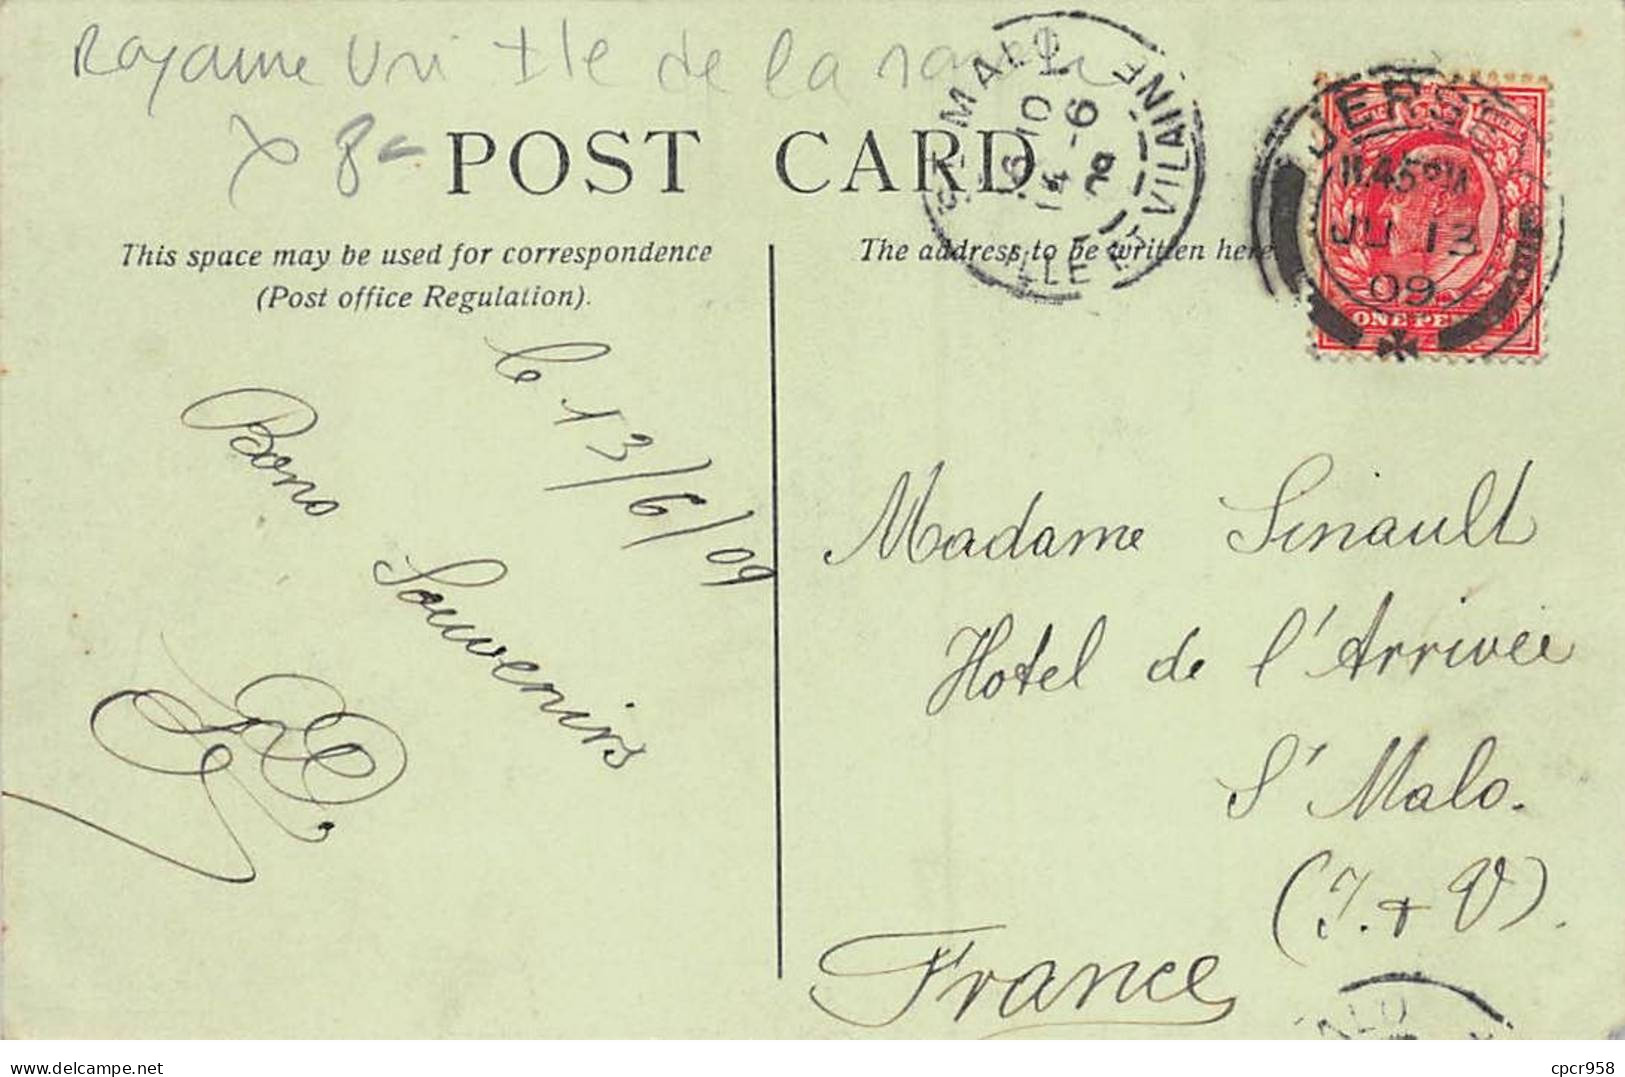 Royaume Uni Ile de la
8-
POST CARD
This space may be used for correspondence
(Post office Regulation).
The address to be written here
ST MALO
ILLE ET VILAINE
6 10
14 - 6
09
JERSEY
11.45 PM
JU 13
09
ONE PENNY
le 13/6/09
Bons
Souvenirs
Madame Sinault
Hotel de l'Arrivée
St Malo.
(I. + V).
France
MALO
delcampe.net
cpcr958